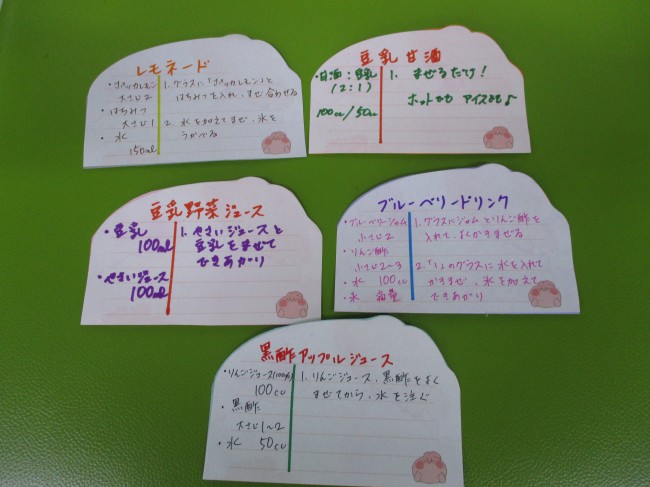 レモネード
・ポッカレモン
大さじ2
・はちみつ
大さじ1
・水
150ml
1. グラスに「ポッカレモン」と
はちみつを入れ、まぜ合わせる
2. 水を加えてまぜ、氷を
うかべる
豆乳甘酒
・甘酒:豆乳
(2:1)
100cc/50cc
1. まぜるだけ!
ホットでも アイスでも♪
豆乳野菜ジュース
・豆乳
100ml
・やさいジュース
100ml
1. やさいジュースと
豆乳をまぜて
できあがり
ブルーベリードリンク
・ブルーベリージャム
小さじ2
・りんご酢
小さじ2~3
・水 100cc
・氷 適量
1. グラスにジャムとりんご酢を
入れて、よくかきまぜる
2.「1」のグラスに水を入れて
かきまぜ、氷を加えて
できあがり
黒酢アップルジュース
・りんごジュース(100%)
100cc
・黒酢
大さじ1~2
・水 50cc
1. りんごジュース、黒酢をよく
まぜてから、水を注ぐ